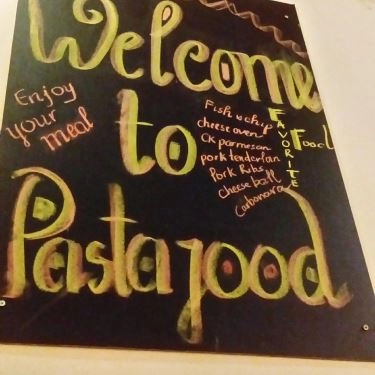 Welcome
to
Pastagood
Enjoy
your
meal
FAVORITE
Food
Fish & chip
cheese oven
CK parmesan
pork tenderloin
Pork Ribs
cheese ball
Carbonara